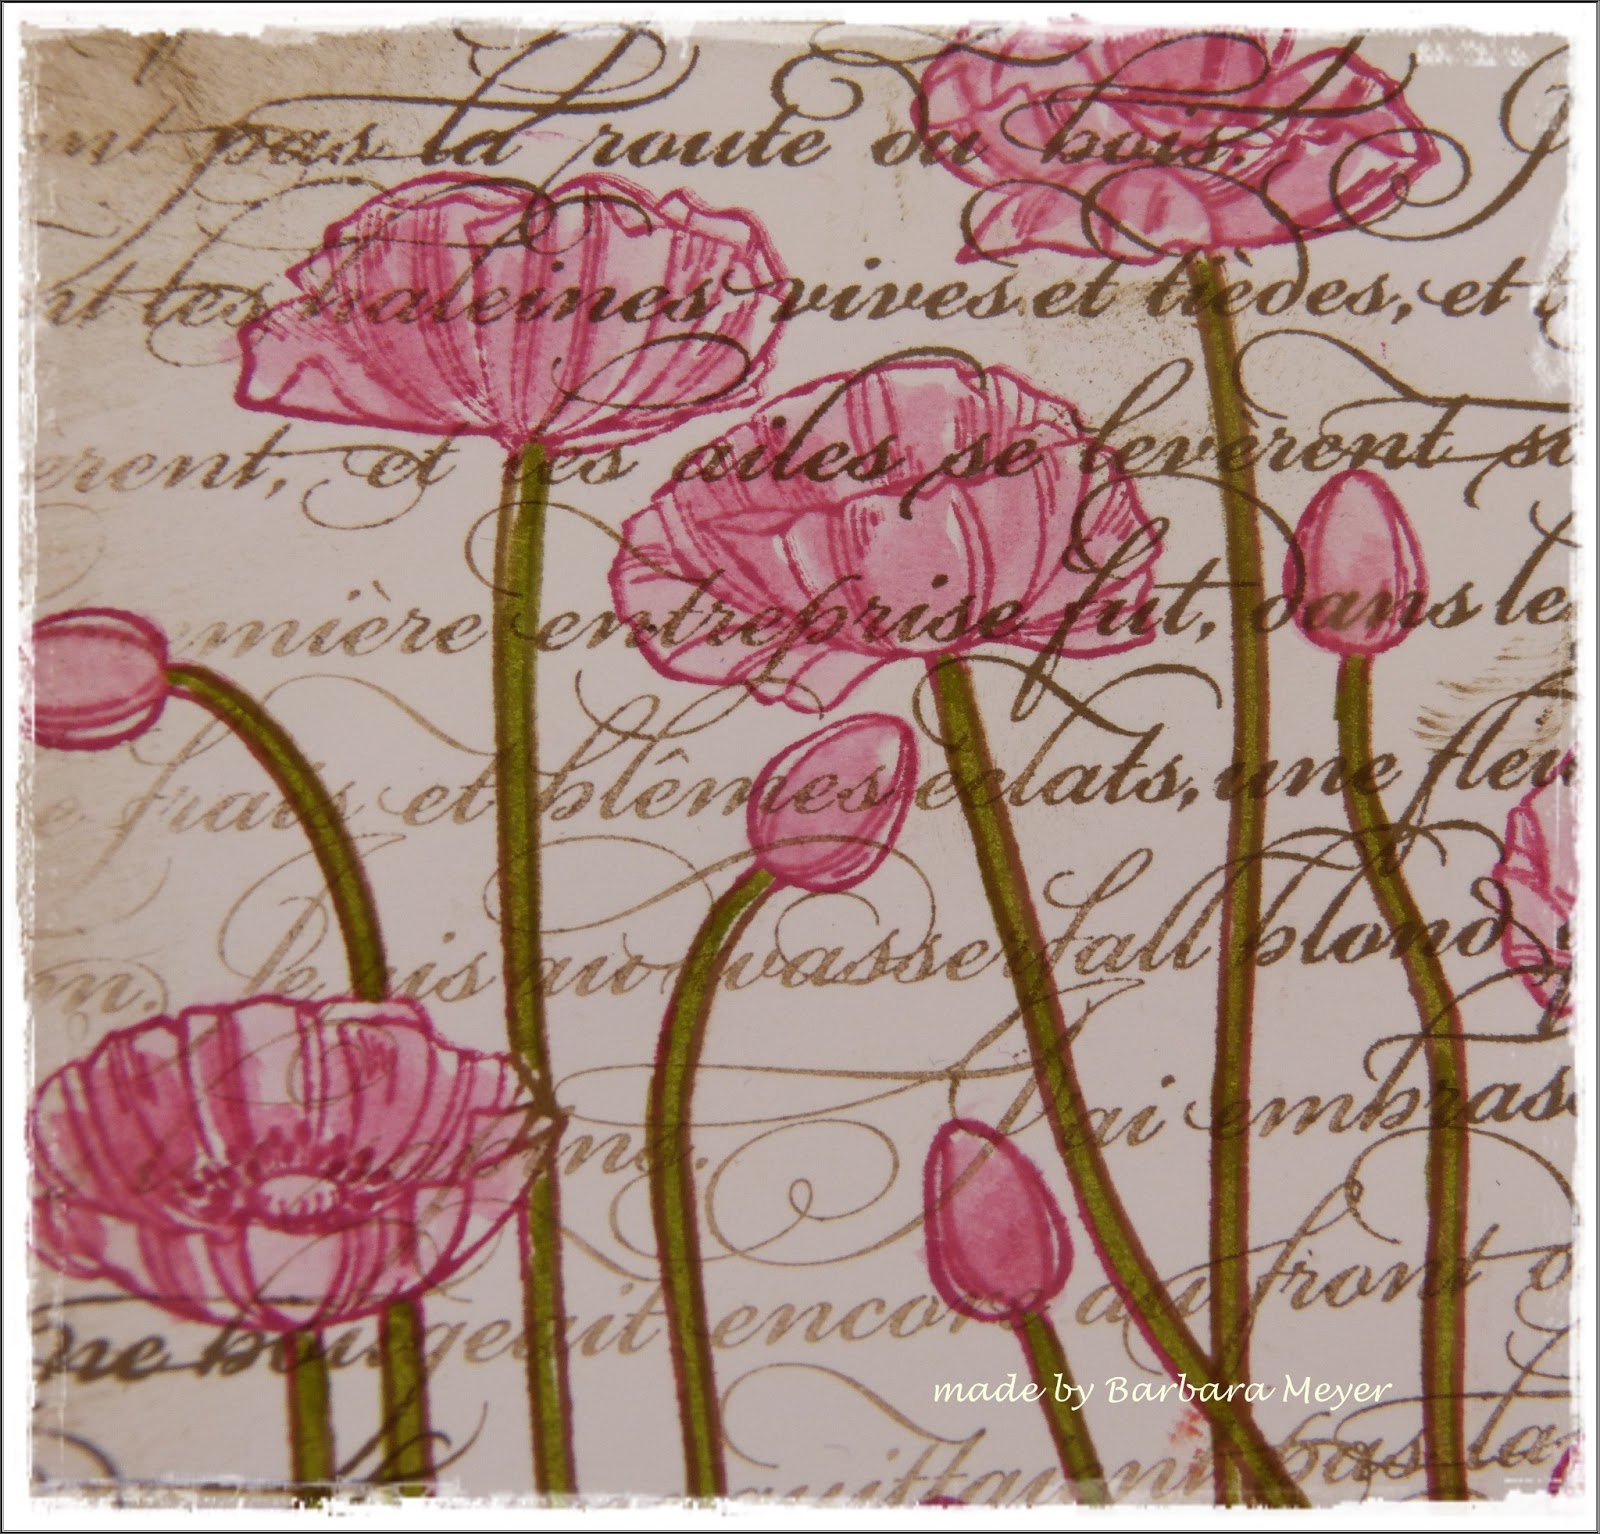 pas la route du bois.
les haleines vives et tièdes, et
erent, et les ailes se levèrent
emière entreprise fut, dans le
frais et blêmes éclats, une fleu
Je ris au wasserfall blond
J'ai embras
ne bougeait encore au front
pas la
made by Barbara Meyer